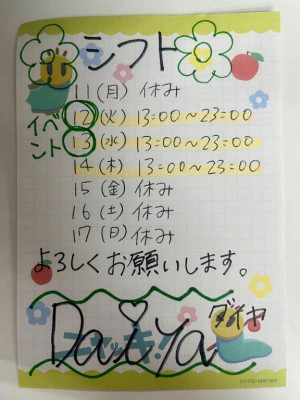 シフト
11(月) 休み
イベント
12(火) 13:00〜23:00
13(水) 13:00〜23:00
14(木) 13:00〜23:00
15(金) 休み
16(土) 休み
17(日) 休み
よろしくお願いします。
ダイヤ
Daiya